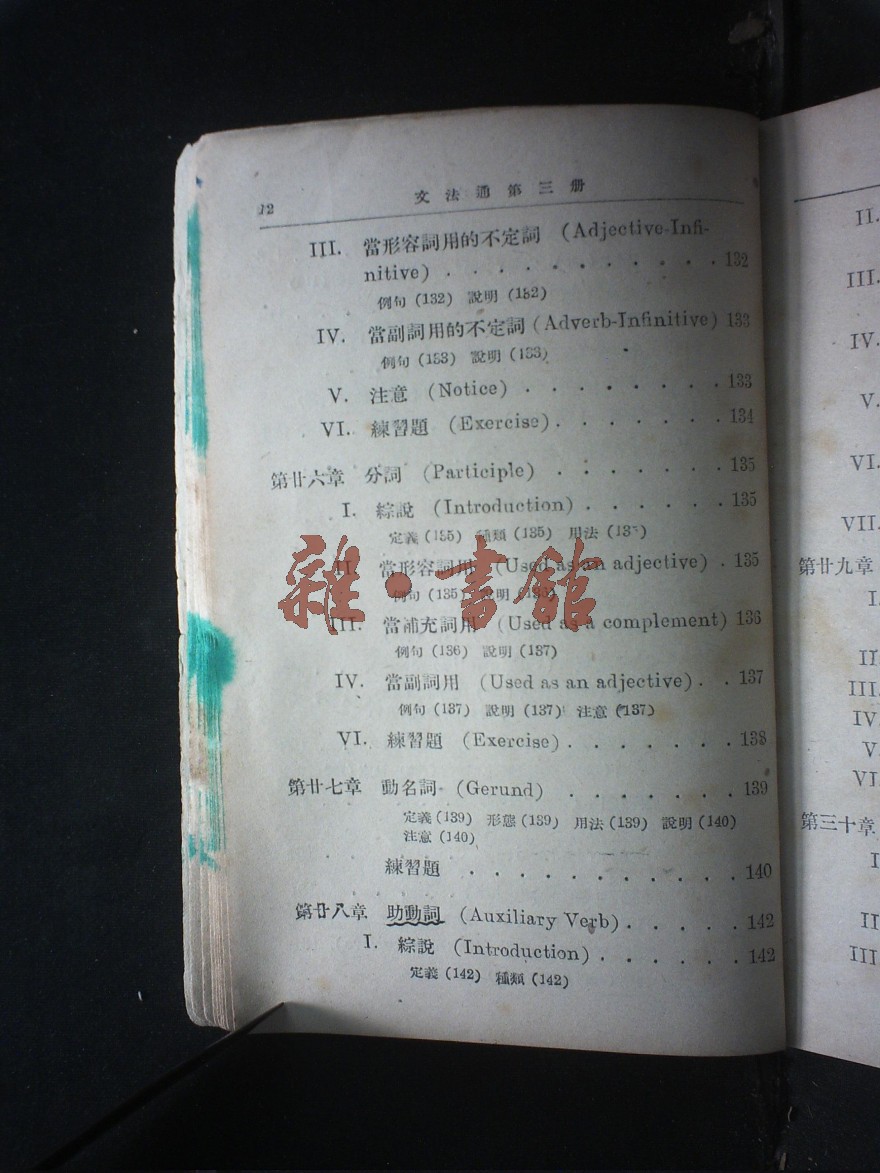 12 文法通第三册
III. 當形容詞用的不定詞 (Adjective-Infi-
nitive) . . . . . . . . . . . 132
例句 (132) 說明 (132)
IV. 當副詞用的不定詞 (Adverb-Infinitive) 133
例句 (133) 說明 (133)
V. 注意 (Notice) . . . . . . . . 133
VI. 練習題 (Exercise) . . . . . . . 134
第廿六章 分詞 (Participle) . . . . . . . 135
I. 綜說 (Introduction) . . . . . . 135
定義 (135) 種類 (135) 用法 (135)
II. 當形容詞用 (Used as an adjective) . 135
例句 (135) 說明 (135)
III. 當補充詞用 (Used as a complement) 136
例句 (136) 說明 (137)
IV. 當副詞用 (Used as an adjective) . . 137
例句 (137) 說明 (137) 注意 (137)
VI. 練習題 (Exercise) . . . . . . . 138
第廿七章 動名詞 (Gerund) . . . . . . . 139
定義 (139) 形態 (139) 用法 (139) 說明 (140)
注意 (140)
練習題 . . . . . . . . . . . 140
第廿八章 助動詞 (Auxiliary Verb) . . . . . 142
I. 綜說 (Introduction) . . . . . . 142
定義 (142) 種類 (142)
雜·書館
II.
III.
IV.
V.
VI.
VII.
第廿九章
I.
II.
III.
IV.
V.
VI.
第三十章
I
II
III